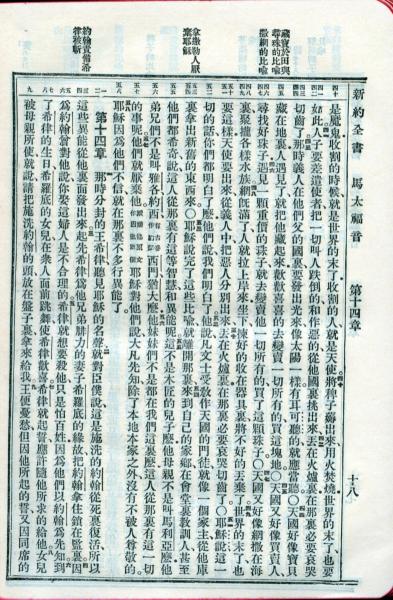 新約全書 馬太福音 第十四章 十八
是魔鬼收割的時候就是世界的末了收割的人就是天使將稗子薅出來用火焚燒世界的末了也要
如此人子要差遣使者把一切叫人跌倒的和作惡的從他國裏挑出來丟在火爐裏在那裏必要哀哭
切齒了那時義人在他們父的國裏要發出光來像太陽一樣有耳可聽的就應當聽○天國好像寶貝
藏在地裏人遇見了就把他藏起來歡歡喜喜的去變賣一切所有的買這塊地○天國又好像買賣人
尋找好珠子遇見一顆重價的珠子就去變賣他一切所有的買了這顆珠子○天國又好像網撒在海
裏聚攏各樣水族網既滿了人就拉上岸來坐下揀好的收在器具裏將不好的丟棄了世界的末了也
要這樣天使要出來從義人中把惡人分別出來丟在火爐裏在那裏必要哀哭切齒了○耶穌說這一
切的話你們都明白了麼他們說我們明白了他說凡文士受教作天國的門徒就像一個家主從他庫
裏拿出新舊的東西來○耶穌說完了這些比喻就離開那裏來到自己的家鄉在會堂裏教訓人甚至
他們都希奇說這人從那裏有這等智慧和異能呢這不是木匠的兒子麼他母親不是叫馬利亞麼他
弟兄們不是叫雅各約西西門猶大麼他妹妹們不是都在我們這裏麼這人從那裏有這一切
的事呢他們就厭棄他耶穌對他們說大凡先知除了本地本家之外沒有不被人尊敬的
耶穌因爲他們不信就在那裏不多行異能了
第十四章 那時分封的王希律聽見耶穌的名聲就對臣僕說這是施洗的約翰從死裏復活所以
這些異能從他裏面發出來起先希律爲他兄弟腓力的妻子希羅底的緣故把約翰拿住鎖在監裏因
爲約翰曾對他說你娶這婦人是不合理的希律就想要殺他只是怕百姓因爲他們以約翰爲先知到
了希律的生日希羅底的女兒在衆人面前跳舞使希律歡喜希律就起誓應許隨他所求的給他女兒
被母親所使就說請把施洗約翰的頭放在盤子裏拿來給我王便憂愁但因他所起的誓又因同席的
藏寶於田與
尋珠的比喻
撒網的比喻
拿撒勒人厭
棄耶穌
約翰責備希
律被斬